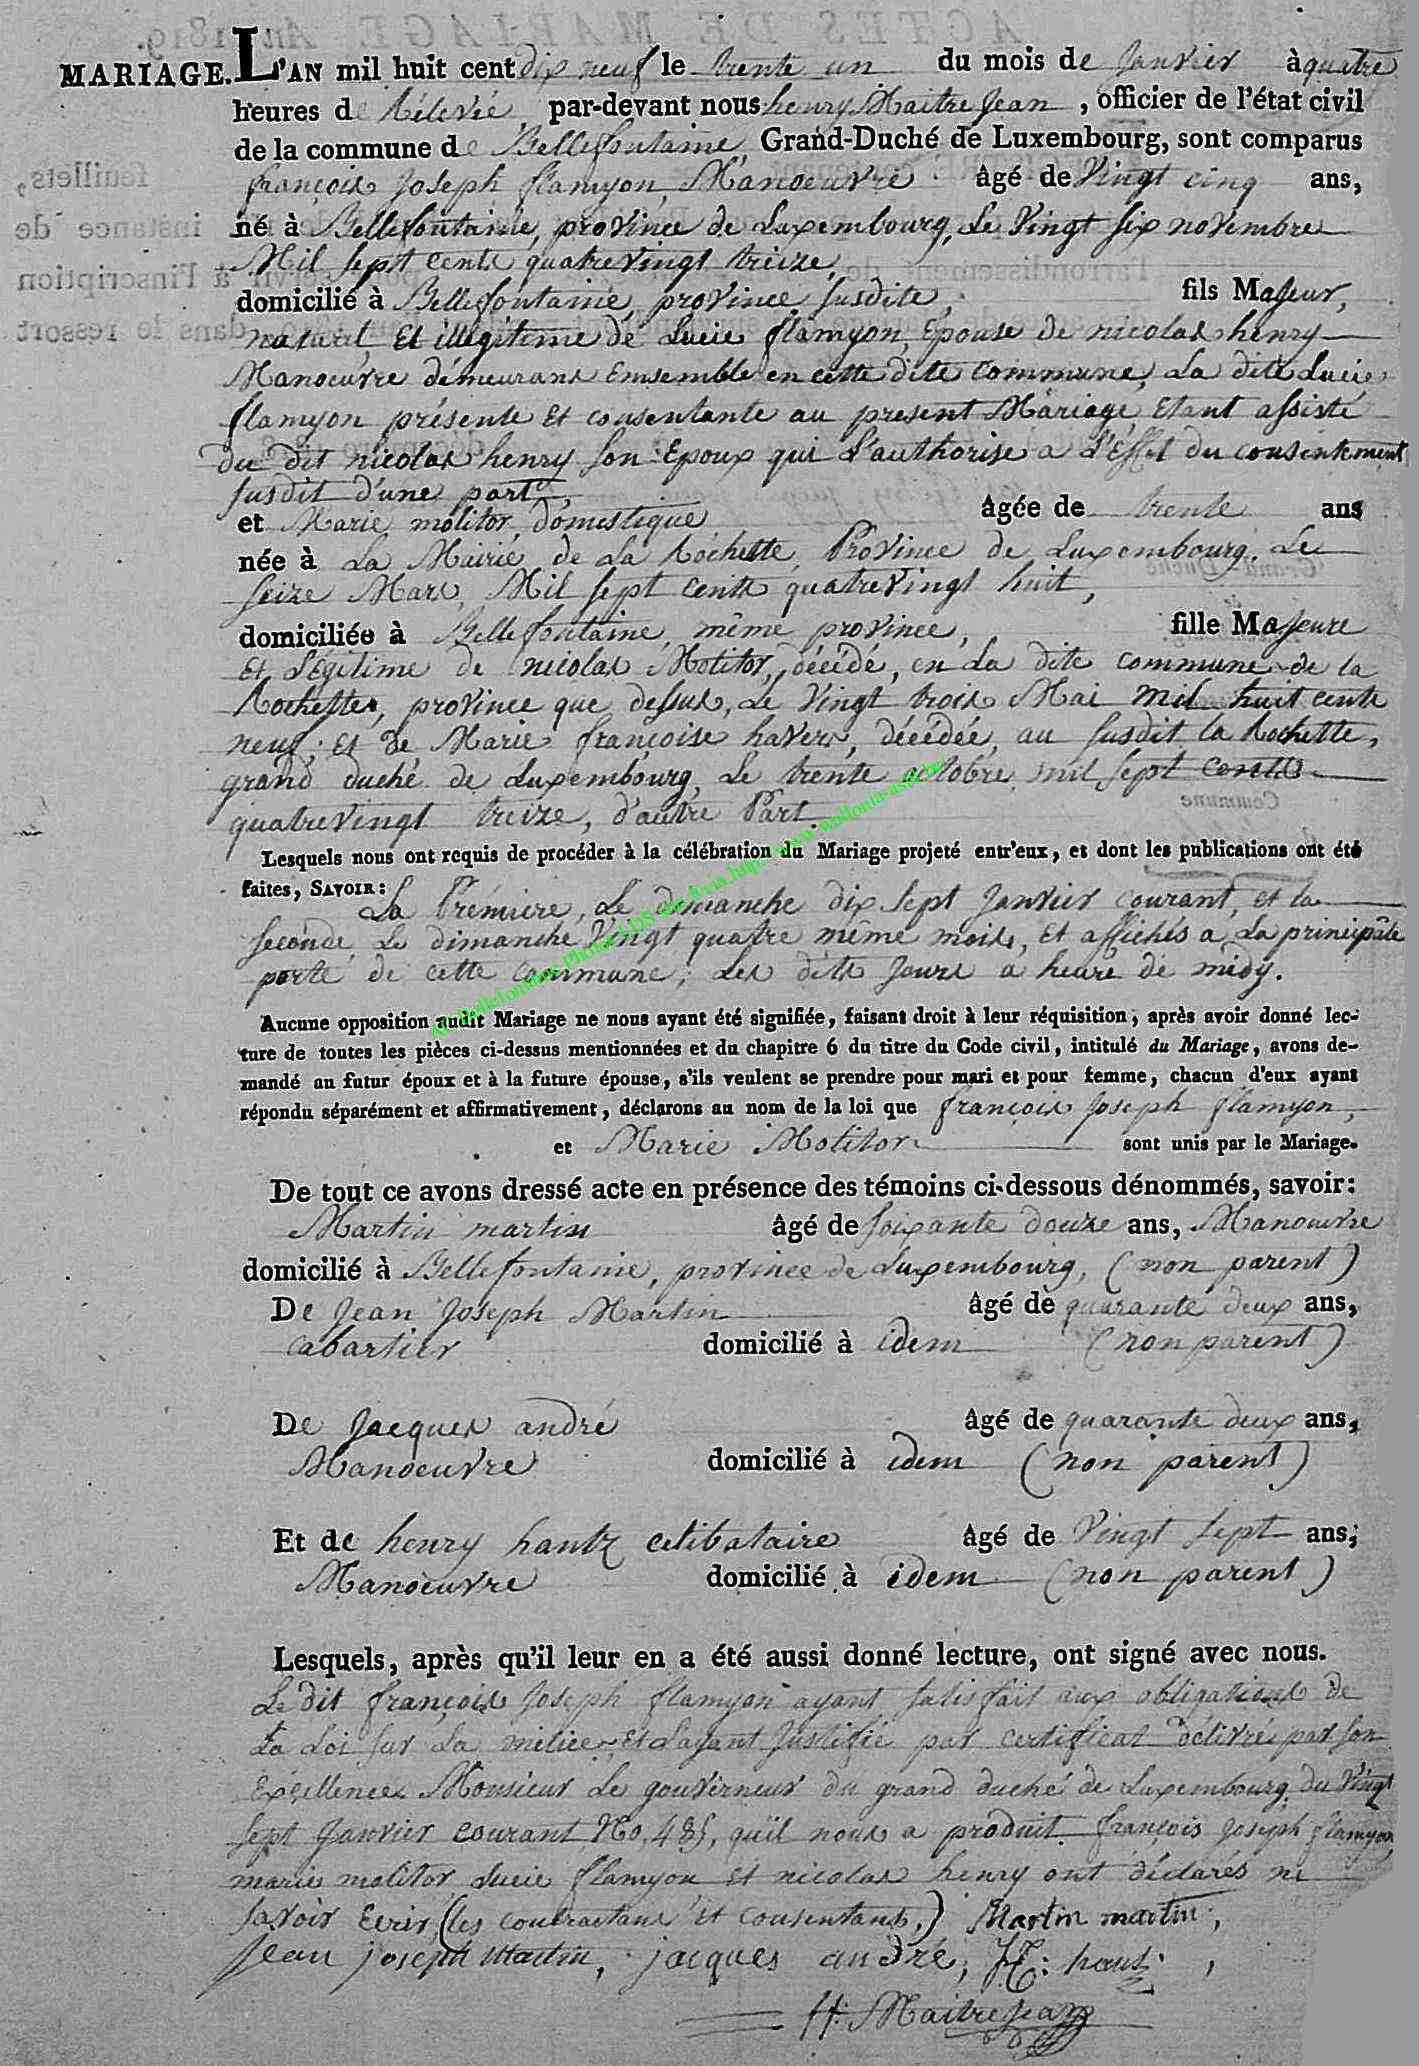 ACTES DE MARIAGE An 1819.
MARIAGE. L'AN mil huit cent dix neuf le trente un du mois de Janvier à quatre
heures de Rélevée, par-devant nous henry Maitre Jean, officier de l'état civil
de la commune de Bellefontaine, Grand-Duché de Luxembourg, sont comparus
françois Joseph flamyon, Manoeuvre âgé de Vingt cinq ans,
né à Bellefontaine, province de Luxembourg, Le Vingt six novembre
Mil sept cents quatrevingt treize,
domicilié à Bellefontaine, province susdite, fils Majeur,
naturel, Et illégitime de Lucie flamyon, Epouse de nicolas henry
Manoeuvre demeurans Emsemble en cette dite commune, La dite Lucie
flamyon présente et consentante au present Mariage, Etant assisté
du dit nicolas henry son Epoux qui L'authorise a L'Effet du consentement
susdit d'une part,
et Marie molitor, domestique âgée de trente ans
née à La Mairie de La Rochette, Province de Luxembourg, Le
seize Mars, Mil sept cents quatrevingt huit,
domiciliée à Bellefontaine, même province, fille Majeure
et Légitime de nicolas Molitor, décédé, en La dite commune de la
Rochette, province que dessus, Le Vingt trois Mai mil huit cents
neuf, et de Marie françoise havers, décédée, au susdit la Rochette,
grand duché de Luxembourg, Le trente octobre mil sept cents
quatrevingt treize, d'autre Part.
Lesquels nous ont requis de procéder à la célébration du Mariage projeté entr'eux, et dont les publications ont été
faites, SAVOIR:
La Premiere, Le dimanche dix sept Janvier courant, et la
seconde Le dimanche Vingt quatre même mois, et affichés a La principâle
porte de cette commune, Les dits Jours a heure de midy.
Aucune opposition audit Mariage ne nous ayant été signifiée, faisant droit à leur réquisition, après avoir donné lec-
ture de toutes les pièces ci-dessus mentionnées et du chapitre 6 du titre du Code civil, intitulé du Mariage, avons de-
mandé au futur époux et à la future épouse, s'ils veulent se prendre pour mari et pour femme, chacun d'eux ayant
répondu séparément et affirmativement, déclarons au nom de la loi que françois Joseph flamyon,
et Marie Molitor sont unis par le Mariage.
De tout ce avons dressé acte en présence des témoins ci-dessous dénommés, savoir:
Martin martin âgé de soixante douze ans, Manoeuvre
domicilié à Bellefontaine, province de Luxembourg, (non parent)
De Jean Joseph Martin âgé de quarante deux ans,
cabartier domicilié à idem (non parent)
De Jacques andré âgé de quarante deux ans,
Manoeuvre domicilié à idem (non parent)
Et de henry hantz celibataire âgé de Vingt sept ans,
Manoeuvre domicilié à idem (non parent)
Lesquels, après qu'il leur en a été aussi donné lecture, ont signé avec nous.
Le dit françois Joseph flamyon ayant satisfait aux obligations de
La Loi sur La milice, Et L'ayant Justifié par certificat délivré par son
Excellence Monsieur Le gouverneur du grand duché de Luxembourg, du Vingt
sept Janvier courant No. 485, qu'il nous a produit. françois Joseph flamyon,
marie molitor Lucie flamyon et nicolas henry ont déclarés ne
savoir Ecrir, (les contractans et consentans,) Martin martin,
Jean joseph Martin, jacques andré, H: hantz,
H: MaitreJean